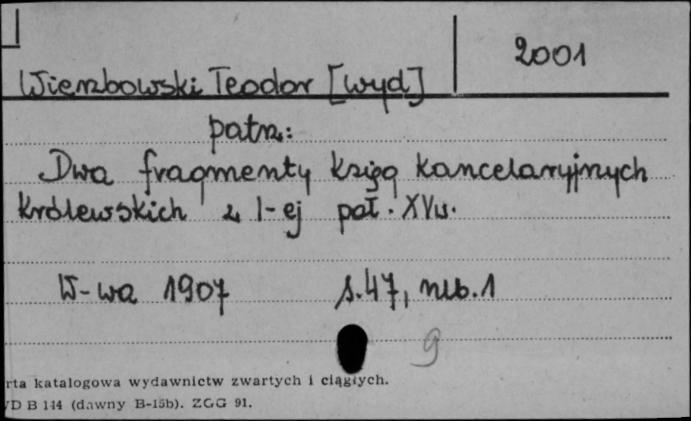 2001
Wierzbowski Teodor [wyd]
patrz:
Dwa fragmenty Ksiąg Kancelaryjnych
Królewskich z I-ej poł. XVw.
W-wa 1907 s.47, nlb.1
9
rta katalogowa wydawnictw zwartych i ciągłych.
D B 144 (dawny B-15b). ZGG 91.